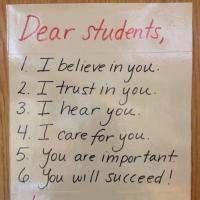 Dear students,
1. I believe in you.
2. I trust in you.
3. I hear you.
4. I care for you.
5. You are important.
6. You will succeed!